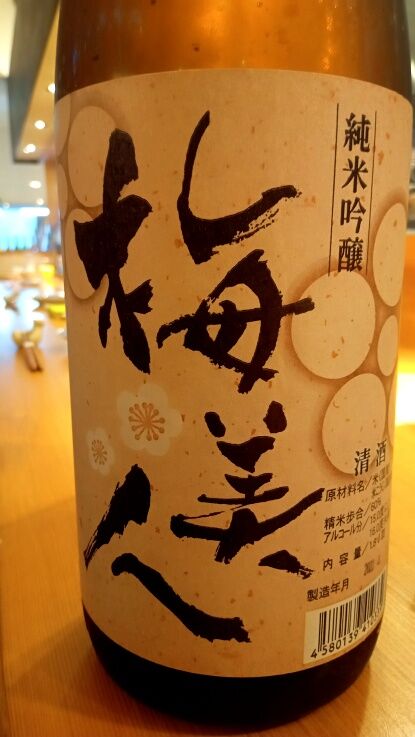 梅美人
純米吟醸
清酒
原材料名/米(国
米こ
精米歩合/60%
アルコール分/15.0
16.0
内容量/1.8
製造年月
4 580139 4